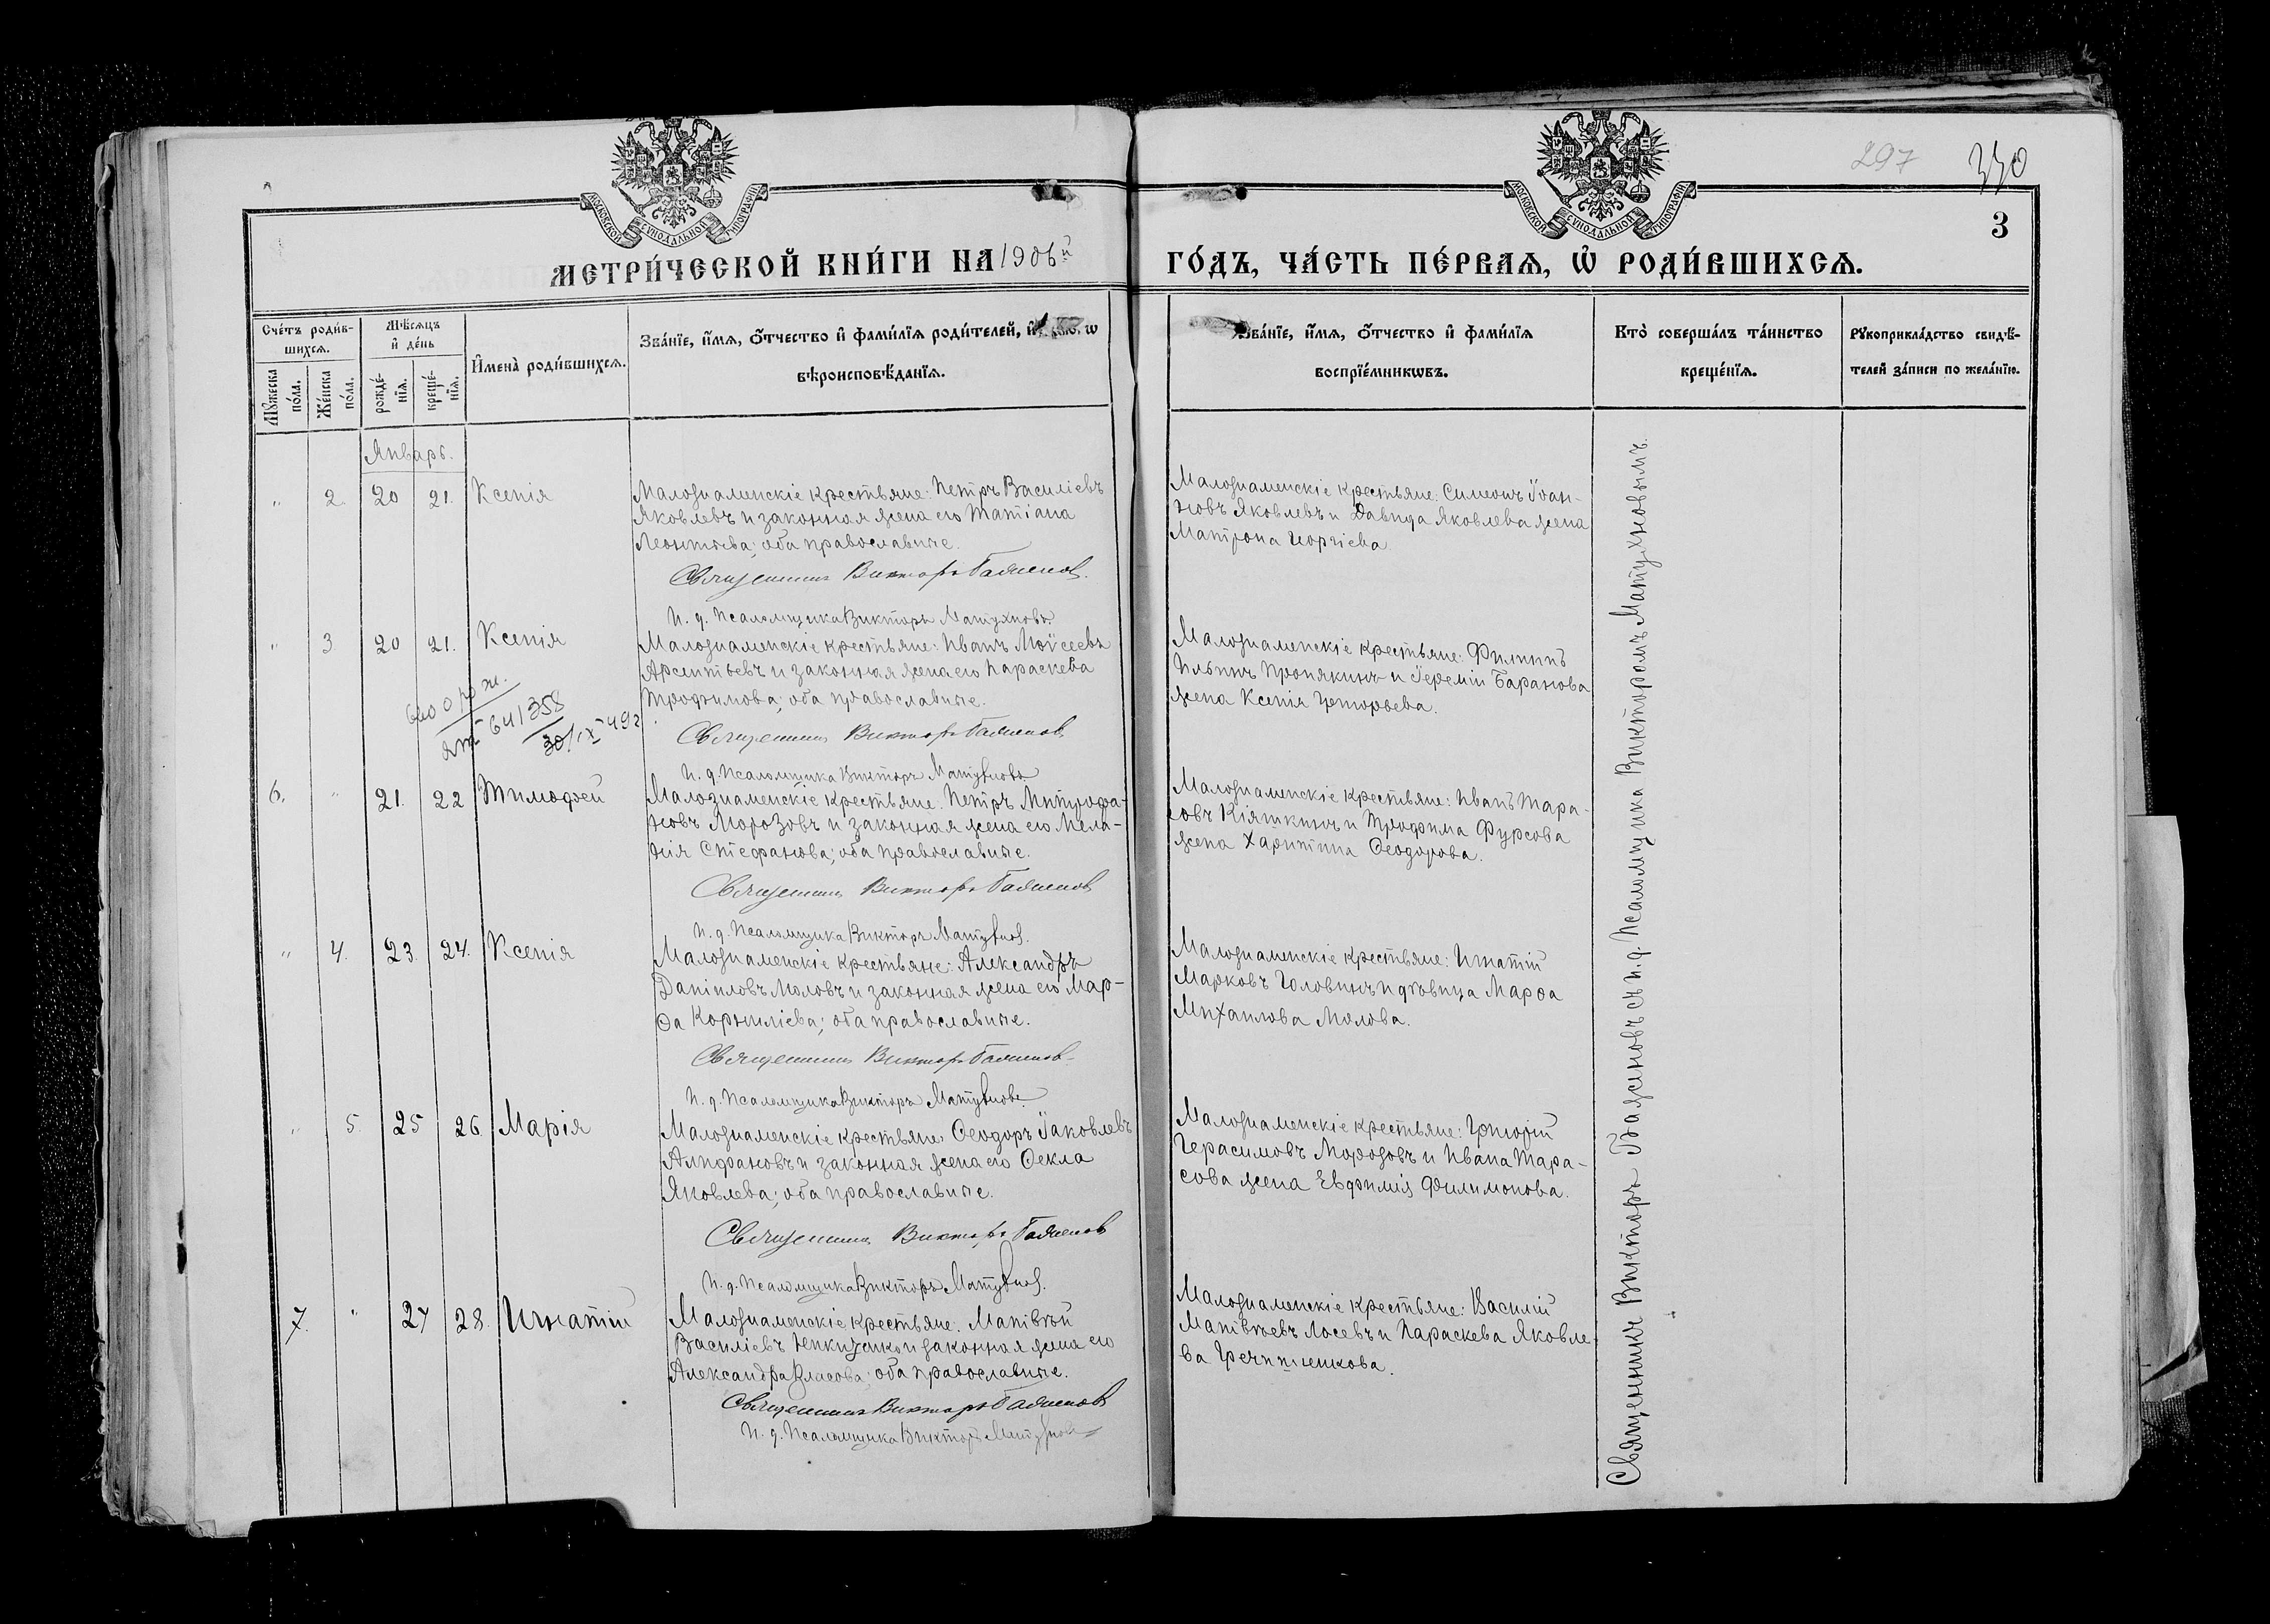 МОСКОВСКОЙ СѴНОДАЛЬНОЙ ТИПОГРАФІИ
МОСКОВСКОЙ СѴНОДАЛЬНОЙ ТИПОГРАФІИ
297
330
3
МЕТРИ́ЧЕСКОЙ КНИ́ГИ НА 1906й ГО́ДЪ, ЧА́СТЬ ПЕ́РВАѦ, Ѡ҆ РОДИ́ВШИХСѦ.
Сче́тъ роди́в-
шихсѧ.
Мꙋ́жеска
по́ла.
Же́нска
по́ла.
Мѣ́сѧцъ
и҆ де́нь
рожде́-
нїѧ.
креще́-
нїѧ.
И҆мена̀ роди́вшихсѧ.
Зва́нїе, и҆́мѧ, ѻ҆́тчество и҆ фами́лїѧ роди́телей, и҆ ѡ
вѣроисповѣ́данїѧ.
Зва́нїе, и҆́мѧ, ѻ҆́тчество и҆ фами́лїѧ
воспрїе́мникѡвъ.
Кто̀ соверша́лъ та́инство
креще́нїѧ.
Рꙋкоприкла́дство свидѣ́-
телей за́писи по жела́нїю.
Январь.
" 2. 20 21. Ксенія
Малознаменскіе крестьяне: Петръ Василіевъ
Яковлевъ и законная жена его Татіана
Леонтьева; оба православные.
Священникъ Викторъ Баженовъ.
И. д. Псаломщика Викторъ Матухновъ.
Малознаменскіе крестьяне: Симеонъ Іоан-
новъ Яковлевъ и Давида Яковлева жена
Матрона Георгіева
" 3 20 21. Ксенія
Малознаменскіе крестьяне: Иванъ Моѵсеевъ
Арсентьевъ и законная жена его Параскева
Трофимова; оба православные.
Священникъ Викторъ Баженовъ
И. д. Псаломщика Викторъ Матухновъ
Малознаменскіе крестьяне: Филиппъ
Ильинъ Пронякинъ и Іереміи Баранова
жена Ксенія Григорьева.
641358
6. " 21. 22 Тимофей
Малознаменскіе крестьяне: Петръ Митрофа-
новъ Морозовъ и законная жена его Мела-
нія Стефанова; оба православные.
Священникъ Викторъ Баженовъ
И. д. Псаломщика Викторъ Матухновъ.
Малознаменскіе крестьяне: Иванъ Тара-
совъ Кіяшкинъ и Трофима Фурсова
жена Харитина Ѳеодорова.
" 4. 23. 24. Ксенія
Малознаменскіе крестьяне: Александръ
Даніиловъ Моловъ и законная жена его Мар-
ѳа Корниліева; оба православные.
Священникъ Викторъ Баженовъ
И. д. Псаломщика Викторъ Матухновъ
Малознаменскіе крестьяне: Игнатій
Марковъ Головинъ и дѣвица Марѳа
Михаилова Молова.
" 5. 25 26. Марія
Малознаменскіе крестьяне: Ѳеодоръ Іаковлевъ
Алифановъ и законная жена его Ѳекла
Яковлева; оба православные.
Священникъ Викторъ Баженовъ
И. д. Псаломщика Викторъ Матухновъ.
Малознаменскіе крестьяне: Григорій
Герасимовъ Морозовъ и Ивана Тара-
сова жена Евфимія Филимонова.
7. " 27 28. Игнатій
Малознаменскіе крестьяне: Матвѣй
Василіевъ и законная жена его
Александра Власова; оба православные.
Священникъ Викторъ Баженовъ
И. д. Псаломщика Викторъ Матухновъ
Малознаменскіе крестьяне: Василій
Матвѣевъ Лосевъ и Параскева Яковле-
ва Гречишникова.
Священникъ Викторъ Баженовъ съ и. д. Псаломщика Викторомъ Матухновымъ.